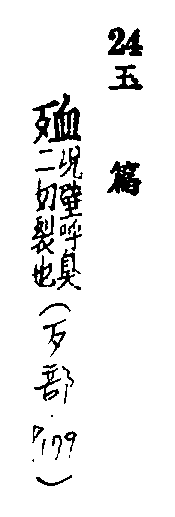 24 玉篇
殈 況壁呼臭
二切裂也(歹部 P.179)